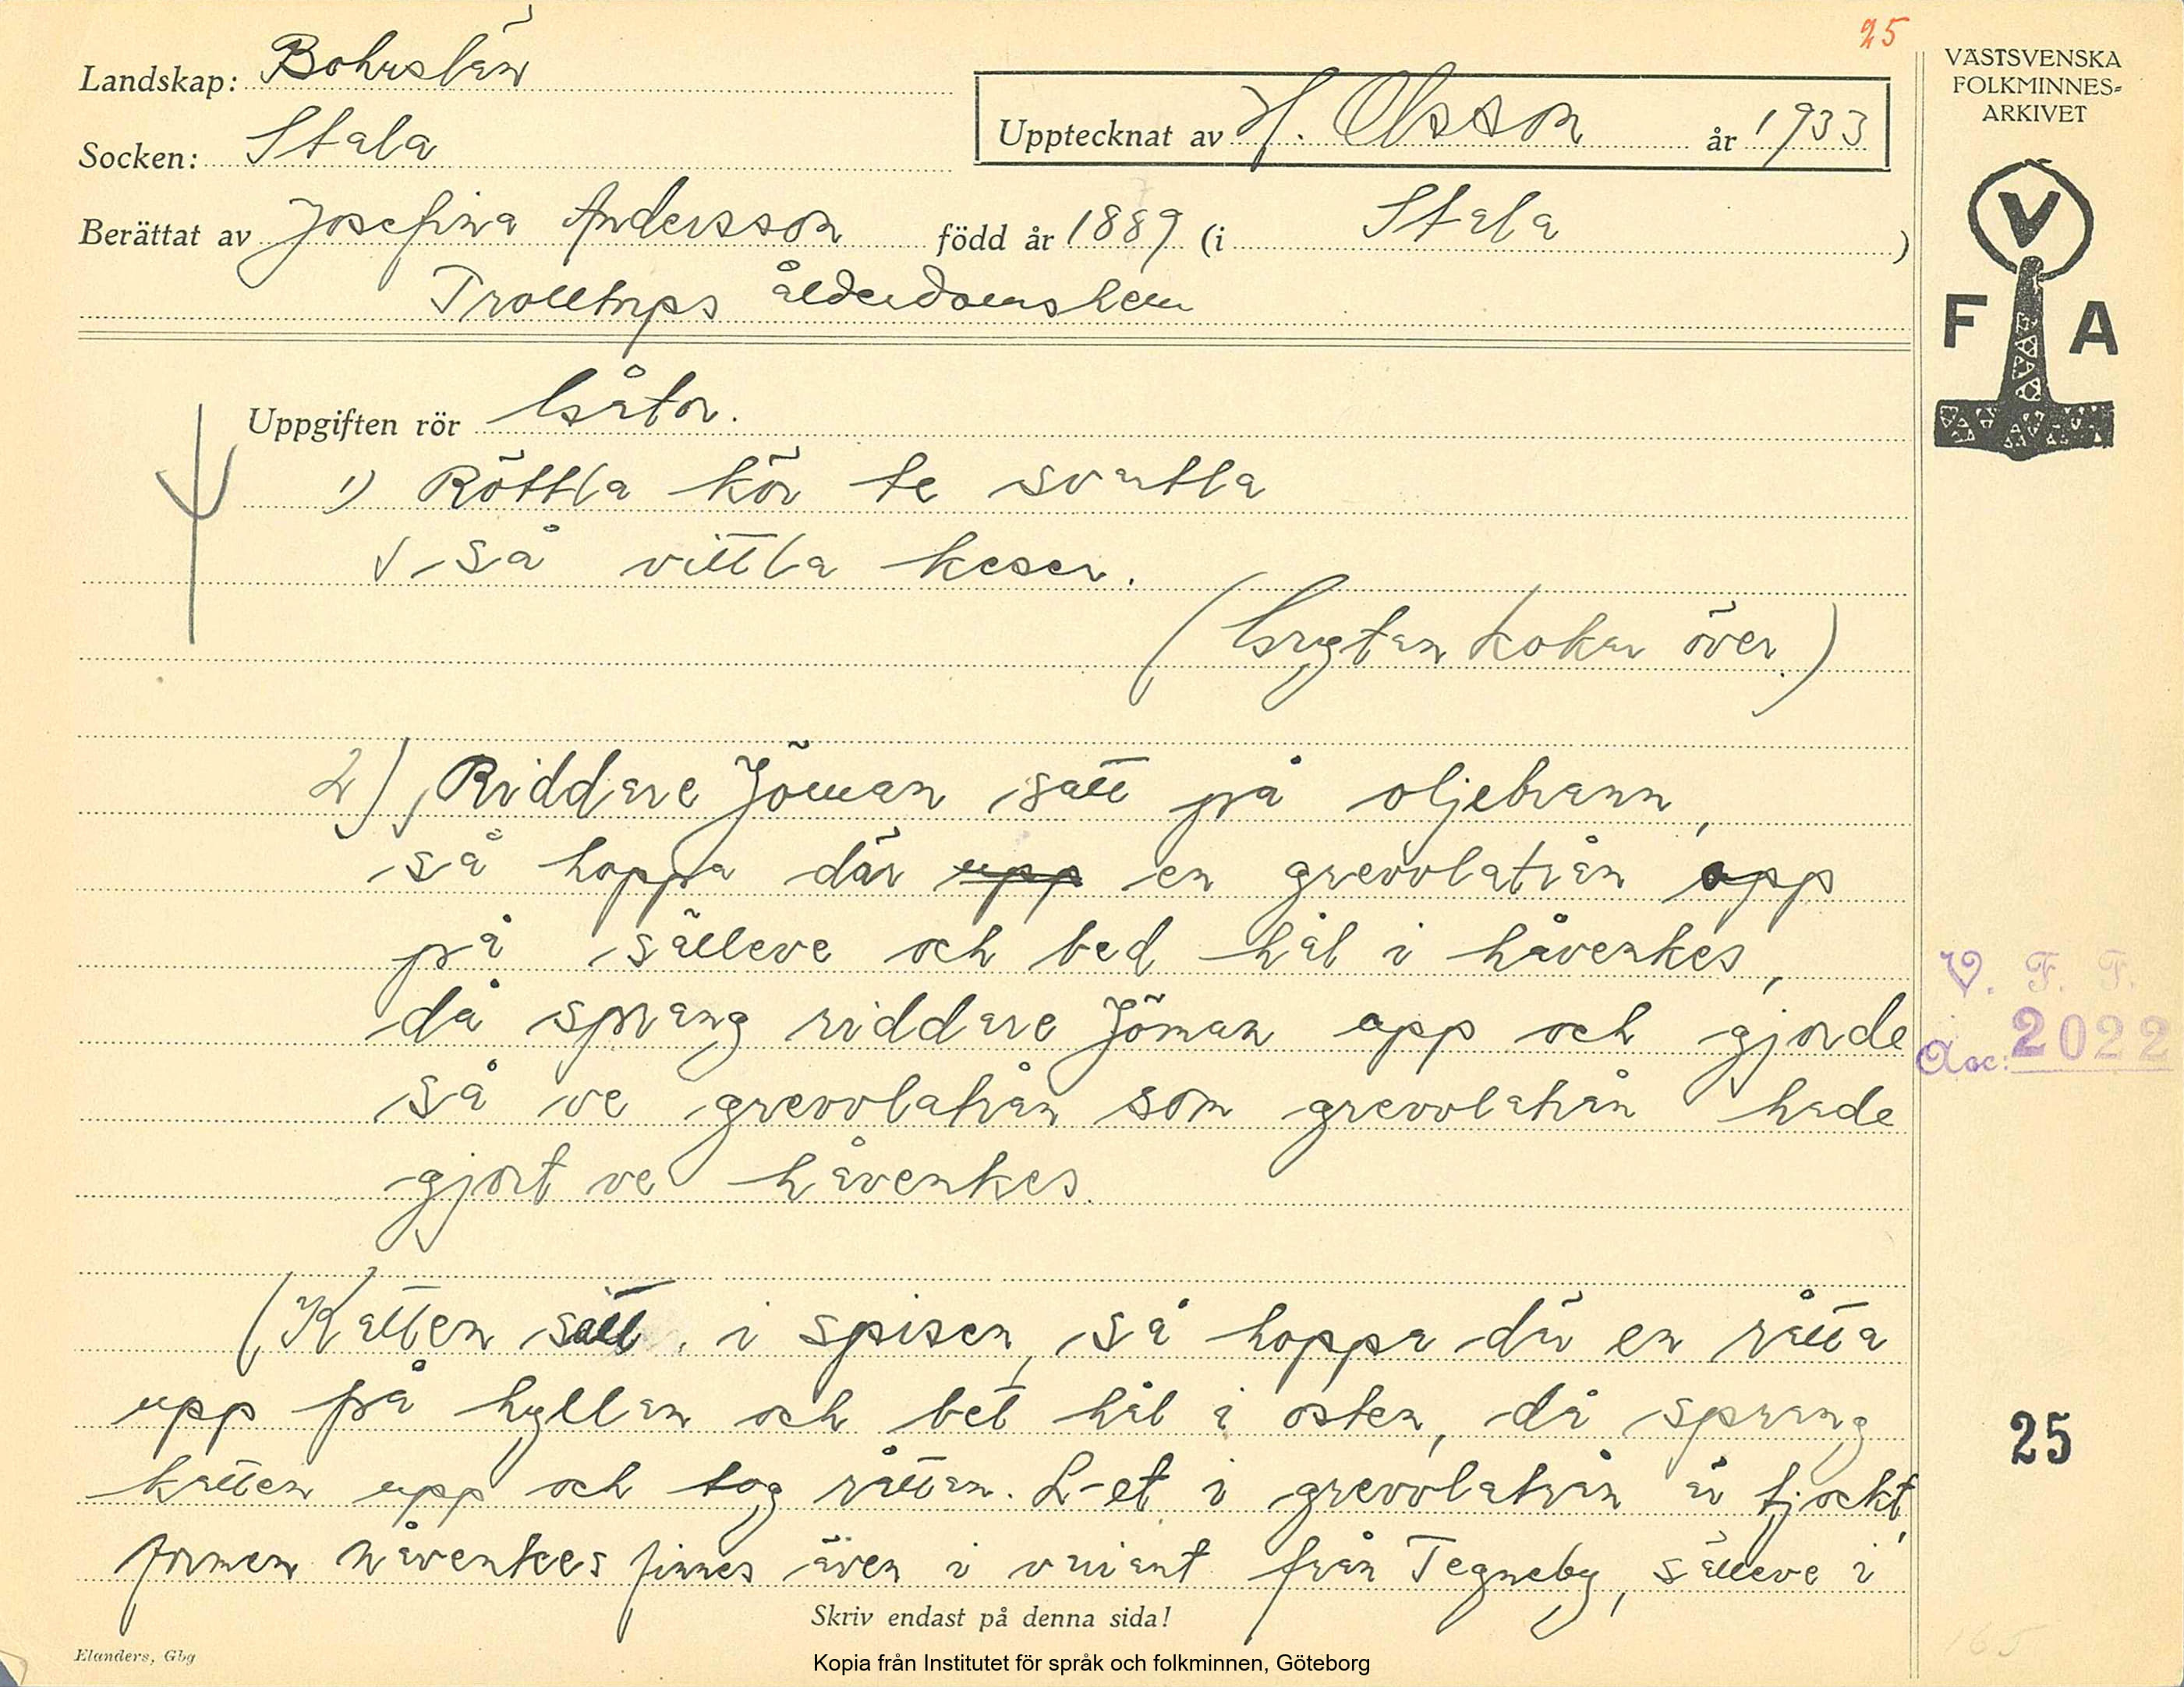 25
Landskap: Bohuslän
Socken: Stala
Upptecknat av H. Olsson år 1933
Berättat av Josefina Andersson född år 1889 (i Stala)
Trolltorps ålderdomshem
VÄSTSVENSKA
FOLKMINNES-
ARKIVET
V
F A
Uppgiften rör Gåtor.
1) Röttla kör te svattla
så vittla keser.
(Grytan kokar över.)
2) Riddare Jöman satt på oljebrann,
så hoppa där upp en grevvlatrån opp
på sälleve och bed hål i håvenkes,
då sprang riddare Jöman opp och gjorde
så ve grevvlatrån som grevvlatrån hade
gjort ve håvenkes.
(Katten satt i spisen, så hoppa där en råtta
upp på hyllan och bet hål i osten, då sprang
katten upp och tog råttan. L-et i grevvlatrån är tjockt,
formen nåvenkes finnes även i variant från Tegneby, sälleve i
V. F. T.
Acc: 2022
25
Skriv endast på denna sida!
Elanders, Gbg
Kopia från Institutet för språk och folkminnen, Göteborg